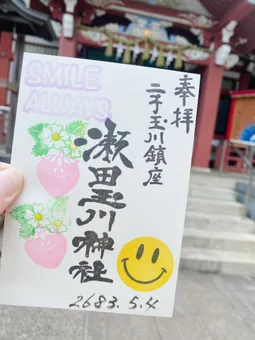 SMILE
ALWAYS
奉拝
二子玉川鎮座
瀬田玉川神社
2683.5.4